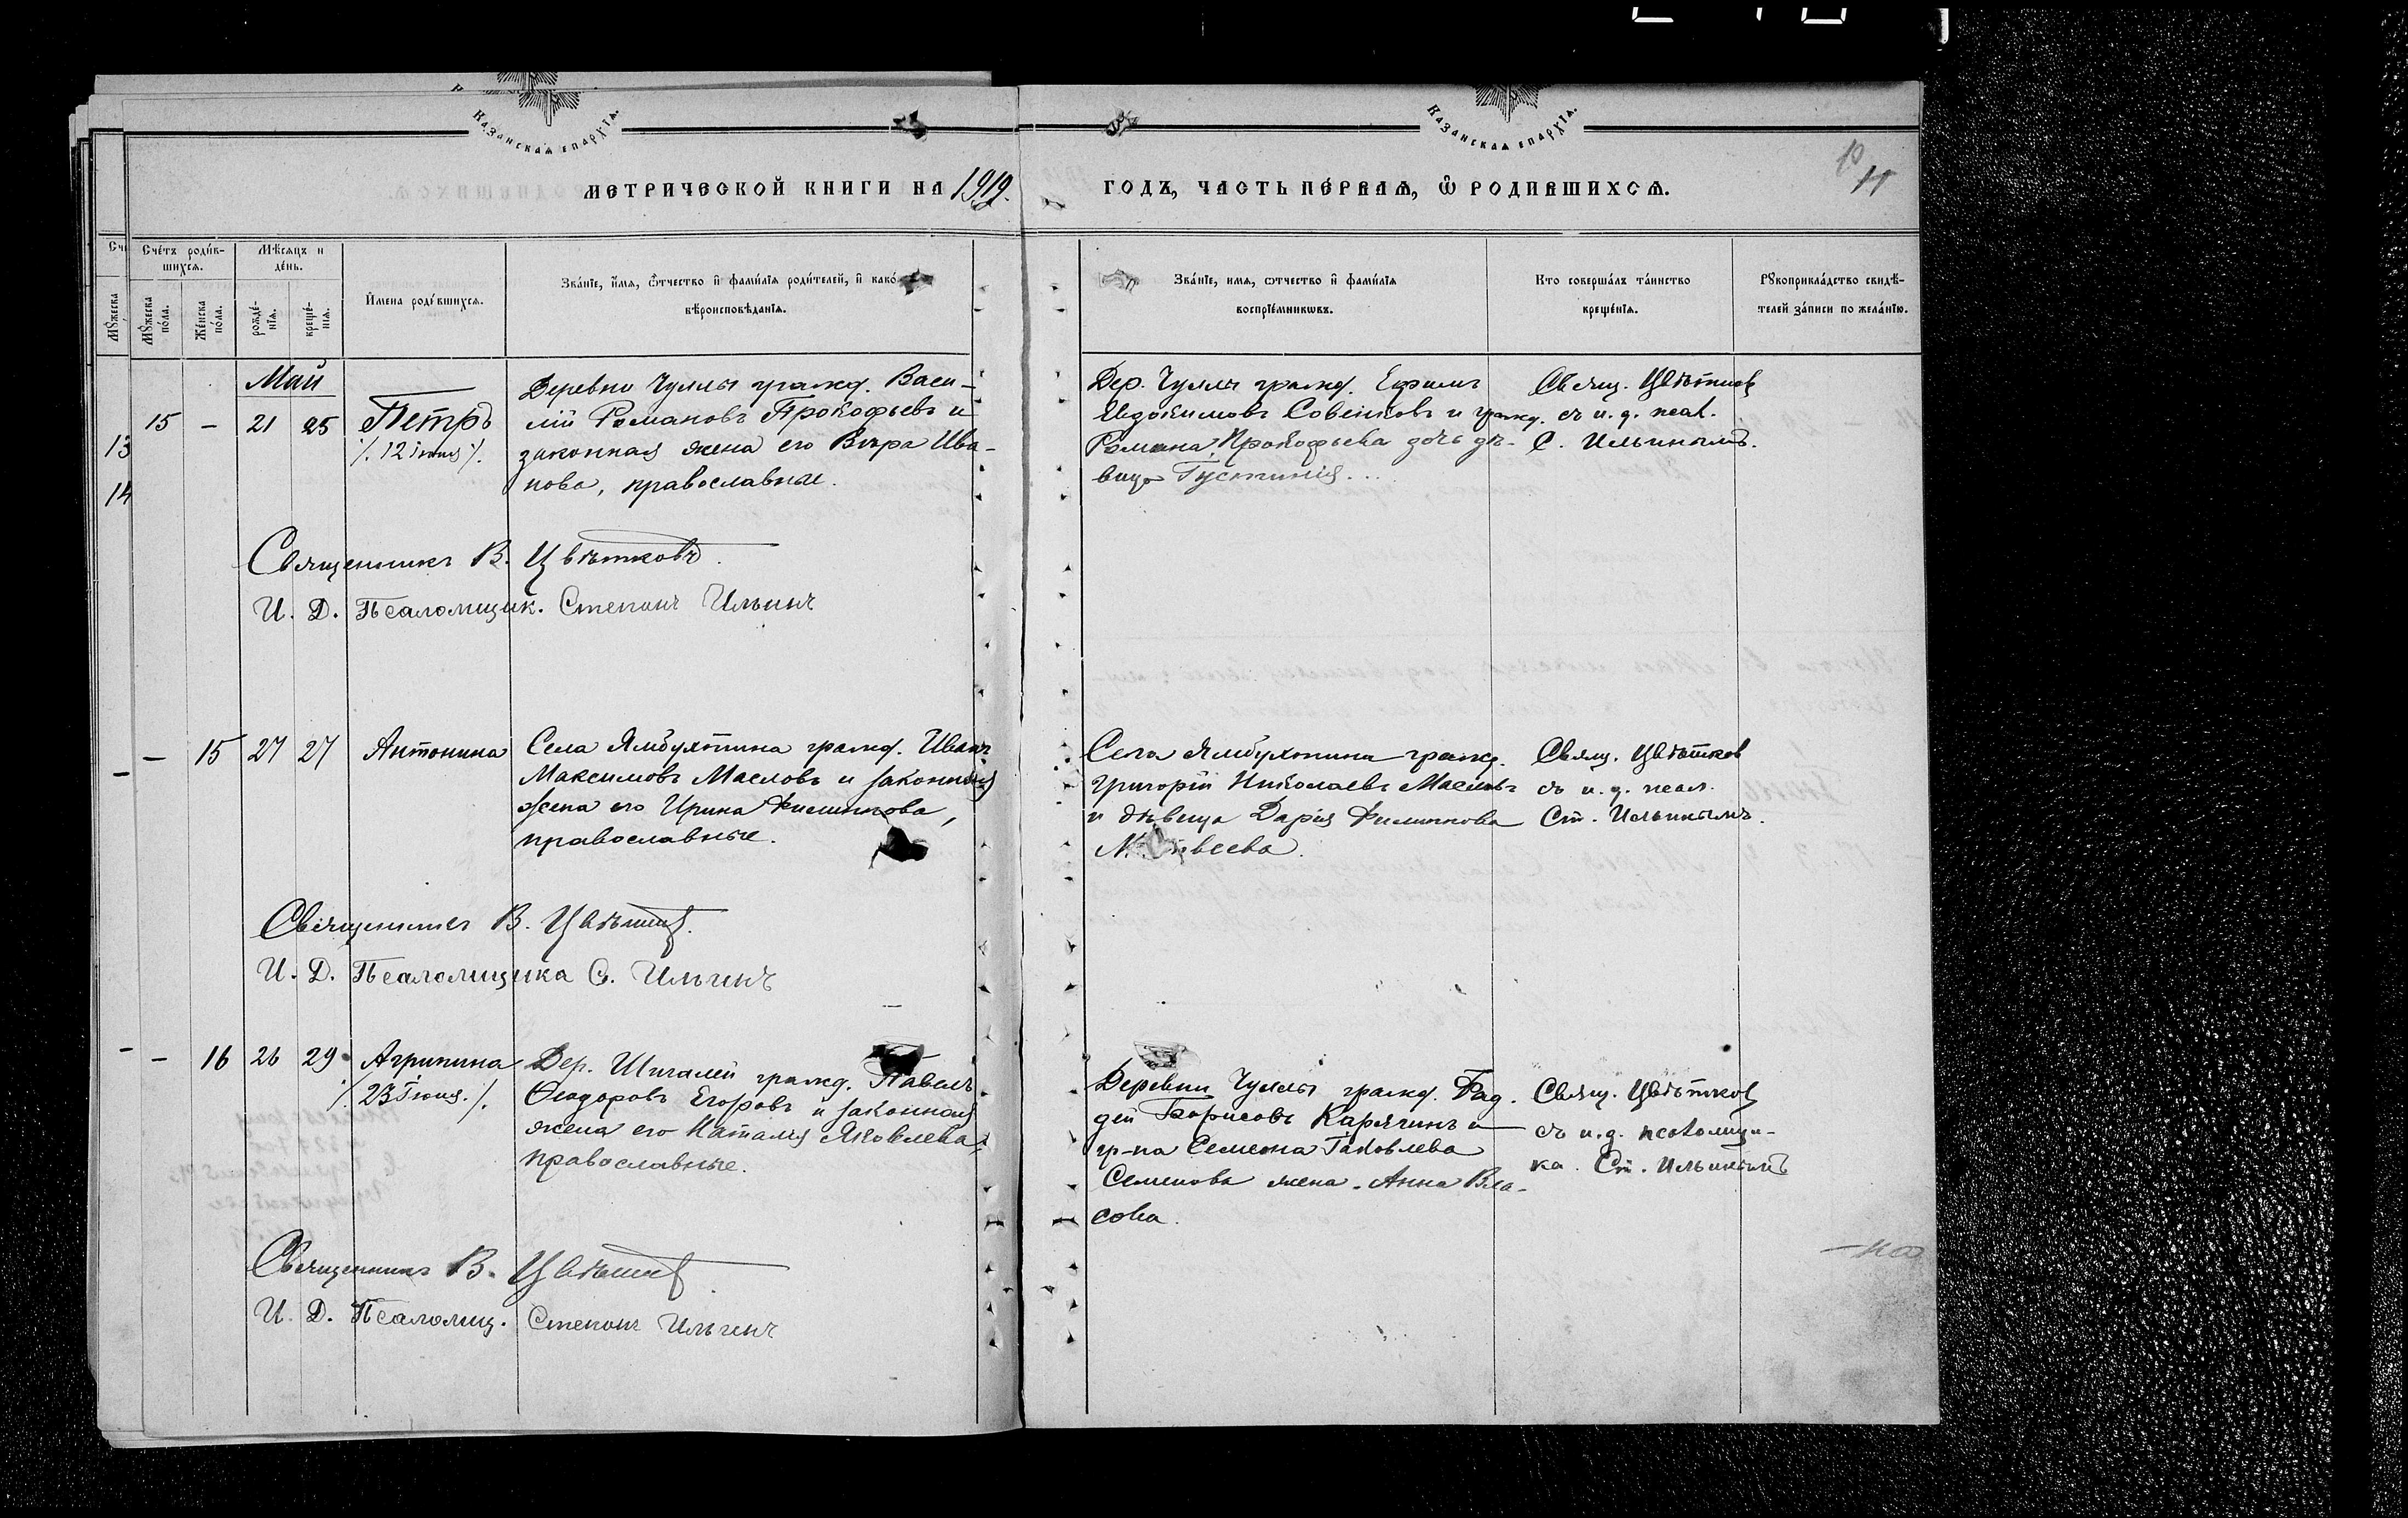 Казанская епархїа.
Казанская епархїа.
МЕТРИЧЕСКОЙ КНИГИ НА 1919.
ГОДЪ, ЧАСТЬ ПЕ́РВАѦ, Ѡ҆ РОДИВШИХСѦ.
10
11
Сче́тъ роди́в-
шихсѧ.
Мѣ́сѧцъ и
де́нь.
И҆мена роди́вшихсѧ.
Зва́нїе, и҆́мѧ, ѻ҆́тчество и҆ фами́лїѧ роди́телей, и҆ како́
вѣроисповѣ́данїѧ.
Зва́нїе, имѧ, ѻтчество и҆ фами́лїѧ
воспрїе́мникѡвъ.
Кто соверша́лъ та́инство
креще́нїѧ.
Рꙋкоприкла́дство свидѣ́-
телей за́писи по жела́нїю.
Мꙋ́жеска
Мꙋ́жеска
по́ла.
Же́нска
по́ла.
рожде́-
нїѧ.
креще́-
нїѧ.
13
14
Май
15 - 21 25 Петръ
/. 12 iюня /.
Деревни Чуллы гражд. Васи-
лiй Романовъ Прокофьевъ и
законная жена его Вѣра Ива-
нова, православные.
Дер. Чуллы гражд. Ефимъ
Евдокимовъ Совѣтковъ и гражд.
Романа Прокофьева дочь дѣ-
вица Густинiя...
Свящ. Цвѣтков
съ и. д. псал.
С. Ильинымъ.
Священникъ В. Цвѣтковъ.
И. Д. Псаломщик. Степанъ Ильинъ
- 15 27 27 Антонина
Села Ямбухтина гражд. Иванъ
Максимовъ Масловъ и законная
жена его Ирина Филиппова,
православные.
Села Ямбухтина гражд.
Григорiй Николаевъ Масловъ
и дѣвица Дарiя Филиппова
Свящ. Цвѣтков
съ и. д. псал.
Ст. Ильинымъ.
Священникъ В. Цвѣтков.
И. Д. Псаломщика С. Ильинъ
- 16 26 29 Агрипина
/. 23 Iюня. /.
Дер. Шигалей гражд. Павелъ
Ѳеодоровъ Егоровъ и законная
жена его Наталiя Яковлева,
православные.
Деревни Чуллы гражд. Фад.
дей Борисовъ Карягинъ и
гр-на Семена Iаковлева
Семенова жена Анна Вла-
сова.
Свящ. Цвѣтков
съ и. д. псаломщи-
ка. Ст. Ильинымъ
Священникъ В. Цвѣтков.
И. Д. Псаломщ. Степанъ Ильинъ